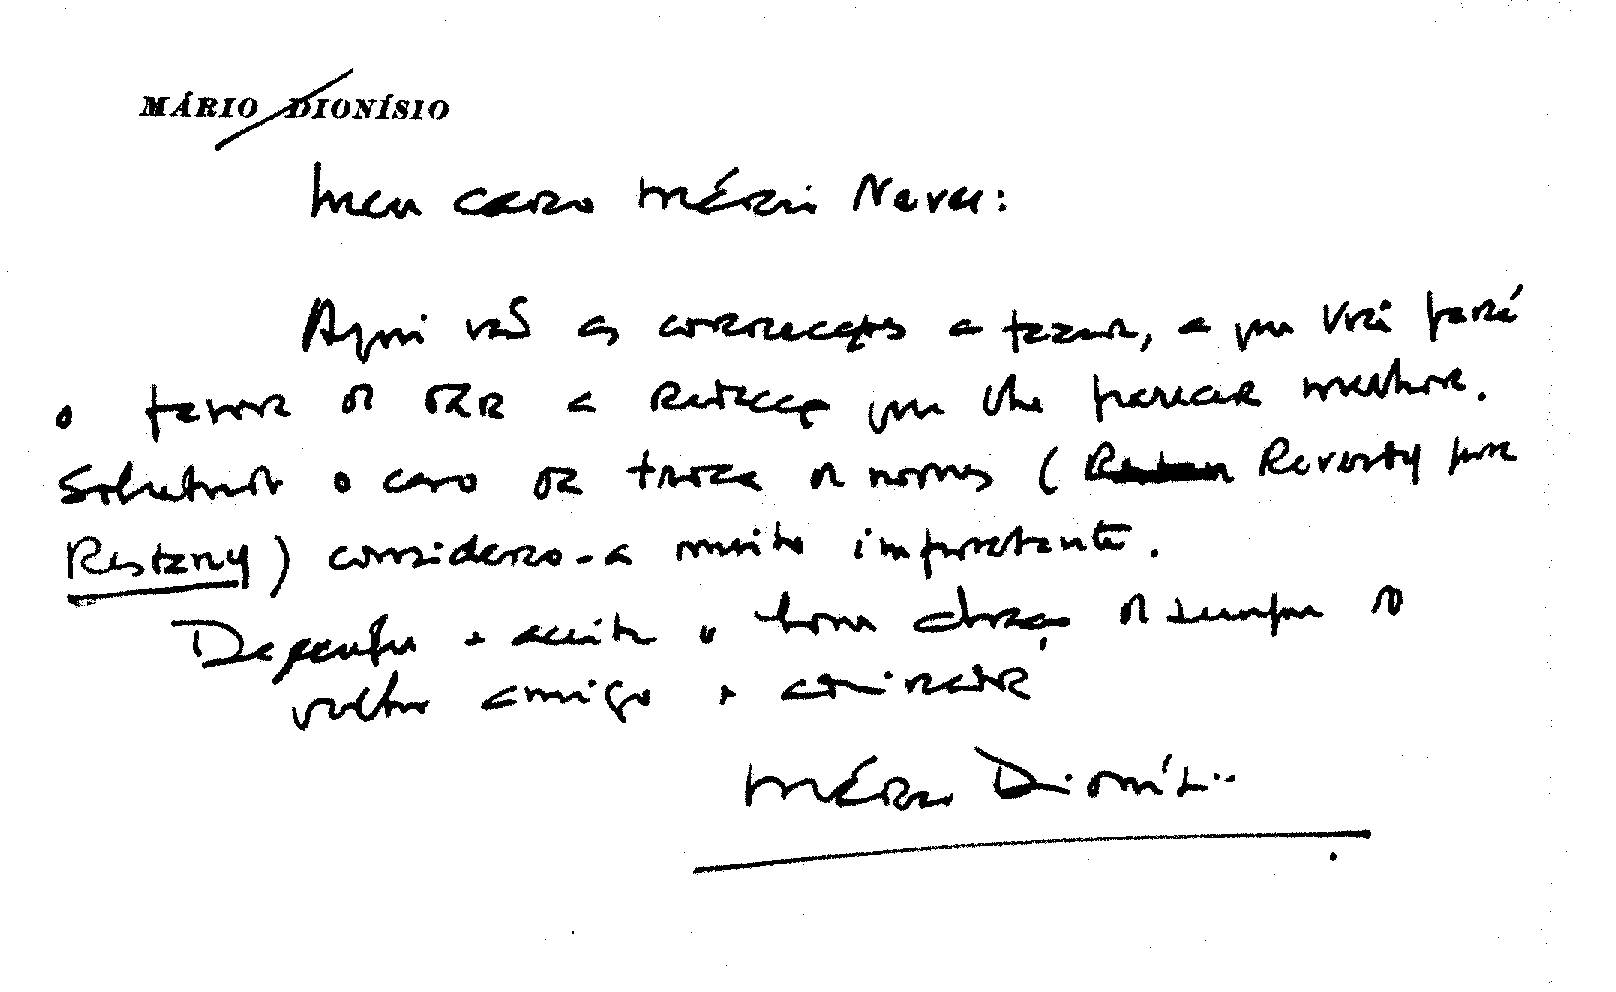 MÁRIO DIONÍSIO
Meu caro Mário Neves:
Aqui vão as correcções a fazer, a que Você fará
o favor de dar a redacção que lhe parecer melhor.
Sobretudo o caso da troca de nomes ( Reverty por
Restany) considero-a muito importante.
Desculpe e aceite o bom abraço de sempre do
velho amigo e admirador
Mário Dionísio